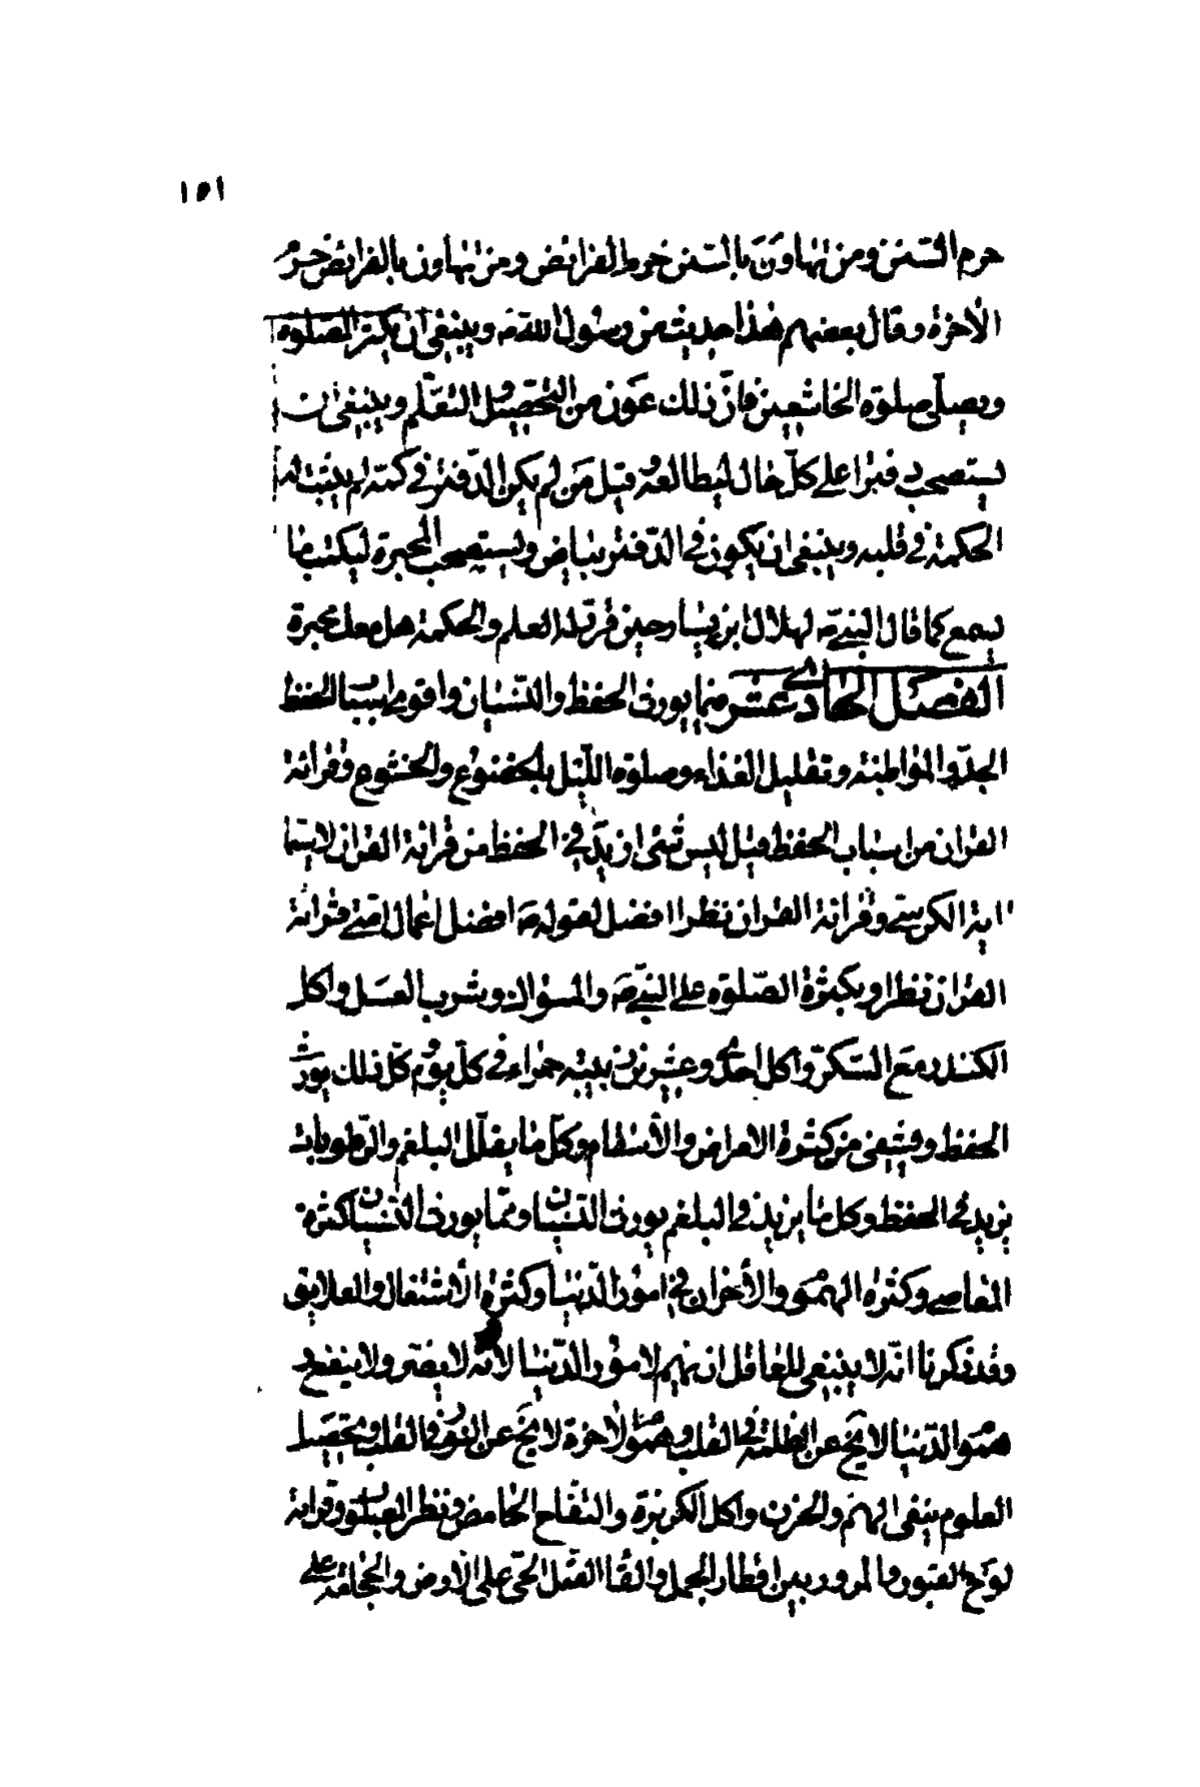 ١٥١
حرم السنن ومن تهاون بالسنن حرم الفرائض ومن تهاون بالفرايض حرم
الأخرة وقال بعضهم هذا حديث من رسول الله ص وينبغى ان يكثر الصلوة
ويصلى صلوة الخاشعين فانّ ذلك عون من التحصيل التعلّم وينبغى ان
يستصحب دفترا على كلّ حال ليطالعه وقيل من لم يكن الدّفتر فى كمّه لم يثبت
الحكمة فى قلبه وينبغى ان يكون فى الدّفتر بياض ويستصحب المحبرة ليكتب ما
يسمع كما قال النبى ص لهلال ابن يسار حين قرّر له العلم والحكمة هل معك محبرة
الفصل الحادى عشر فيما يورث الحفظ والنسيان واقوى اسباب الحفظ
الجدّ والمواظبة وتقليل الغذاء وصلوة اللّيل بالخضوع والخشوع وقرائة
القران من اسباب الحفظ قيل ليس شئ ازيد فى الحفظ من قرائة القران لا سيّما
اية الكرسى وقرائة القران نظرا افضل لقوله ص افضل اعمال امّتى قرائة
القران نظرا وبكثرة الصّلوة على النبى ص والمسواك وشرب العسل واكل
الكندر مع السّكر واكل احد وعشرين زبيبة حمراء فى كلّ يوم كلّ ذلك يورث
الحفظ ويشفى من كثرة الامراض والأسقام وكلّ ما يقلّل البلغم والرّطوبات
يزيد فى الحفظ وكل ما يزيد فى البلغم يورث النسيان وممّا يورث النسيان كثرة
المعاصى وكثرة الهموم والأحزان فى امور الدّنيا وكثرة الأشتغال والعلايق
وقد ذكرنا انّه لا ينبغى للعاقل ان يهتم لامور الدّنيا لأنّه لا يضر ولا ينفع و
هموم الدّنيا لا يخ عن الظلمة فى القلب وهموم الأخرة لا يخ عن النور فى القلب وتحصيل
العلوم ينفى الهمّ والحزن واكل الكزبرة والتفّاح الحامض ونظر المصلوب وقراءة
لوح القبور والمرور بين اقطار الجمل والقاء القمّل الحىّ على الارض والحجامة على